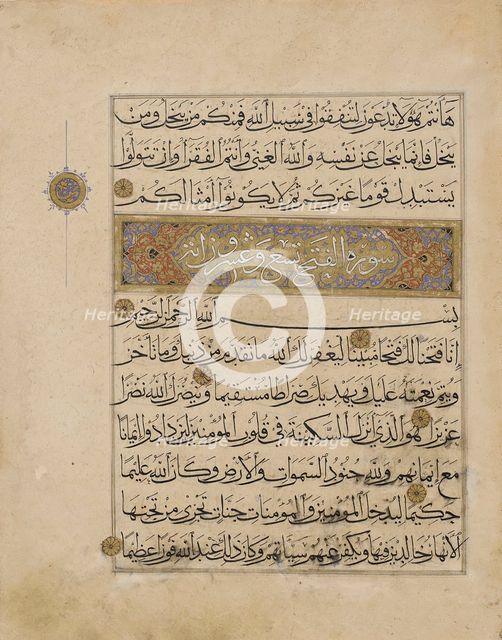 هأنتم هؤلاء تدعون لتنفقوا في سبيل الله فمنكم من يبخل ومن
يبخل فإنما يبخل عن نفسه والله الغني وأنتم الفقراء وإن تتولوا
يستبدل قوما غيركم ثم لا يكونوا أمثالكم
سورة الفتح تسع وعشرون آية
بسم الله الرحمن الرحيم
إنا فتحنا لك فتحا مبينا ليغفر لك الله ما تقدم من ذنبك وما تأخر
ويتم نعمته عليك ويهديك صراطا مستقيما وينصرك الله نصرا
عزيزا هو الذي أنزل السكينة في قلوب المؤمنين ليزدادوا إيمانا
مع إيمانهم ولله جنود السموات والأرض وكان الله عليما
حكيما ليدخل المؤمنين والمؤمنات جنات تجري من تحتها
الأنهار خالدين فيها ويكفر عنهم سيئاتهم وكان ذلك عند الله فوزا عظيما
Heritage Heritage Heritage
Heritage Heritage Heritage
Heritage Heritage Heritage
Heritage Heritage Heritage